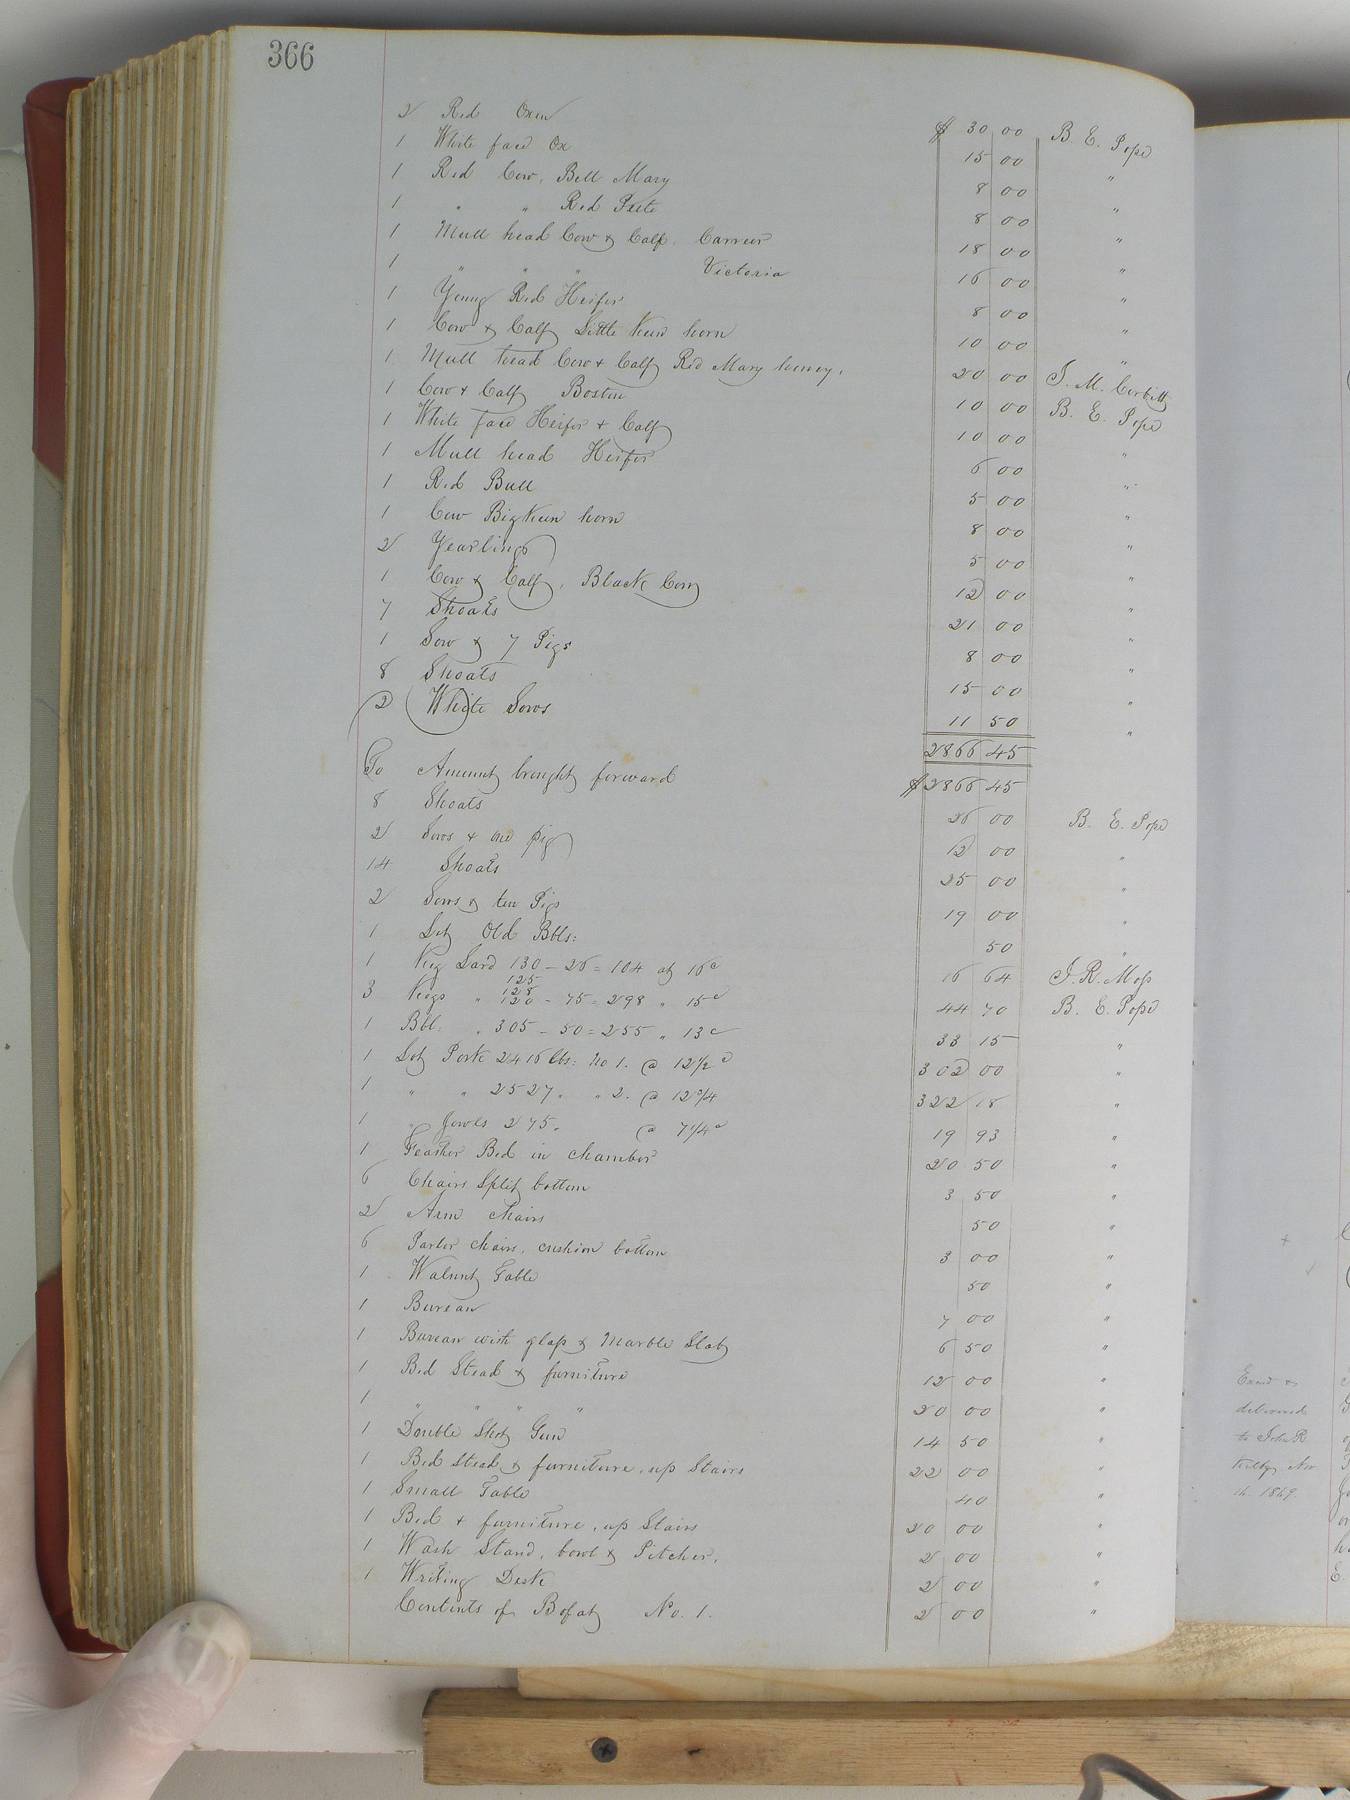 366
2 Red Oxen $ 30 00 B. E. Pope
1 White face Ox 15 00 "
1 Red Cow, Bell Mary 8 00 "
1 " " Red Pete 8 00 "
1 Mull head Cow & Calf. 18 00 "
1 " " " Victoria 16 00 "
1 Young Red Heifer 8 00 "
1 Cow & Calf Little Keen horn 10 00 "
1 Mull head Cow & Calf Red Mary 20 00 J. M. Corbitt
1 Cow & Calf Boston 10 00 B. E. Pope
1 White face Heifer & Calf 10 00 "
1 Mull head Heifer 6 00 "
1 Red Bull 5 00 "
1 Cow Big Keen horn 8 00 "
2 Yearlings 5 00 "
1 Cow & Calf, Black Cow 12 00 "
7 Shoats 21 00 "
1 Sow & 7 Pigs 8 00 "
8 Shoats 15 00 "
2 White Sows 11 50 "
2866 45
To Amount brought forward $2866 45
8 Shoats 26 00 B. E. Pope
2 Sows & one pig 12 00 "
14 Shoats 25 00 "
2 Sows & ten Pigs 19 00 "
1 Lot Old Bbls: 50 "
1 Keg Lard 130 - 26 = 104 at 16c 16 64 J. R. Moss
125
128
3 Kegs " 120 - 75 = 298 " 15c 44 70 B. E. Pope
1 Bbl: " 305 - 50 = 255 " 13c 33 15 "
1 Lot Pork 2416 lbs: No 1. @ 12½c 302 00 "
1 " " 2527 " " 2. @ 12¾ 322 18 "
1 " Jowls 275 " @ 7¼c 19 93 "
1 Feather Bed in chamber 20 50 "
6 Chairs Split bottom 3 50 "
2 Arm chairs 50 "
6 Parlor chairs, cushion bottom 3 00 "
1 Walnut Table 50 "
1 Bureau 7 00 "
1 Bureau with glass & Marble Slab 6 50 "
1 Bed Stead & furniture 12 00 "
1 " " " " 20 00 "
1 Double Shot Gun 14 50 "
1 Bed Stead & furniture, up Stairs 22 00 "
1 Small Table 40 "
1 Bed & furniture, up Stairs 20 00 "
1 Wash Stand, bowl & Pitcher. 2 00 "
1 Writing Desk 2 00 "
Contents of Bofat No. 1. 2 00 "
Exd &
delivered
to John R
1869